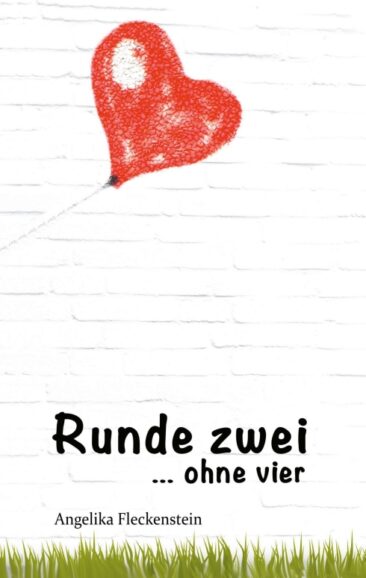 Runde zwei
... ohne vier
Angelika Fleckenstein